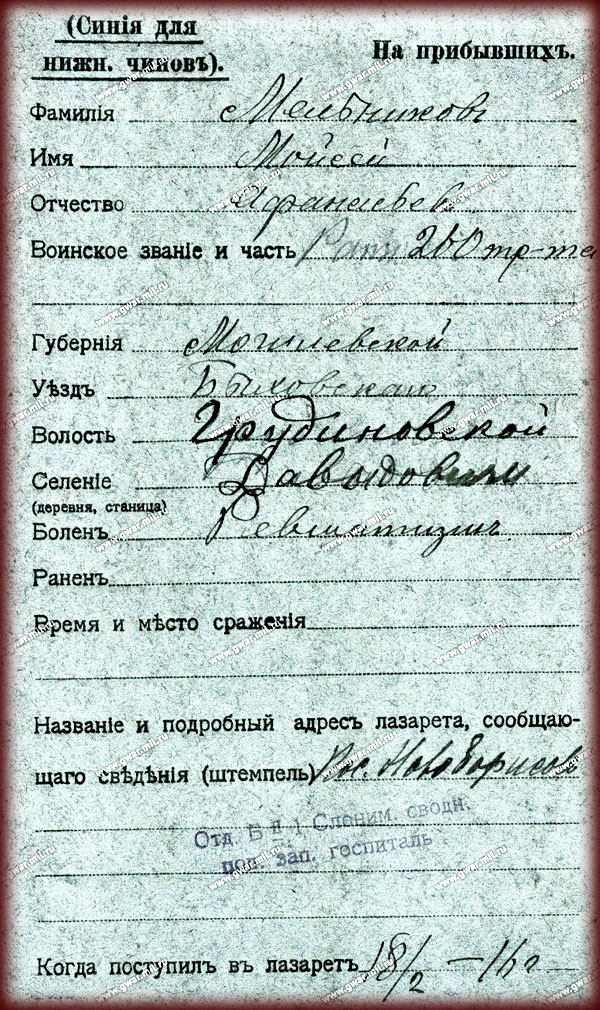 (Синія для
нижн. чиновъ).
На прибывшихъ.
Фамилія Мельниковъ
Имя Мойсей
Отчество Афанасьев
Воинское званіе и часть 260 тр-та
Губернія Могилевской
Уѣздъ Быховскаго
Волость Грудиновской
Селеніе Давыдовичи
(деревня, станица)
Боленъ Ревматизм
Раненъ
Время и мѣсто сраженія
Названіе и подробный адресъ лазарета, сообщаю-
щаго свѣдѣнія (штемпель) Пос. Новоборисов
Отд. 1 Слоним. сводн.
пол. зап. госпиталь
Когда поступилъ въ лазаретъ 18/2 – 16 г
www.gwar.mil.ru